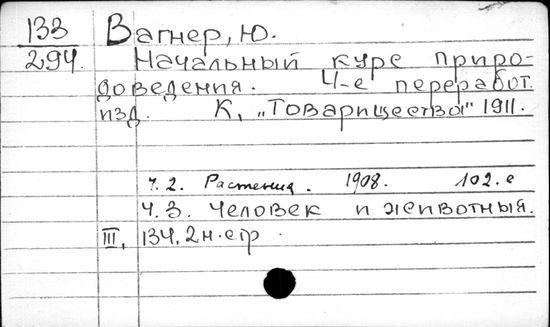 133 Вагнер, Ю.
294. Начальный курс приро-
доведения. 4-е переработ.
изд. К, „Товарищество" 1911.
ч. 2. Растения. 1908. 102. с
ч. 3. Человек и животныя.
III, 134, 2 н. стр.